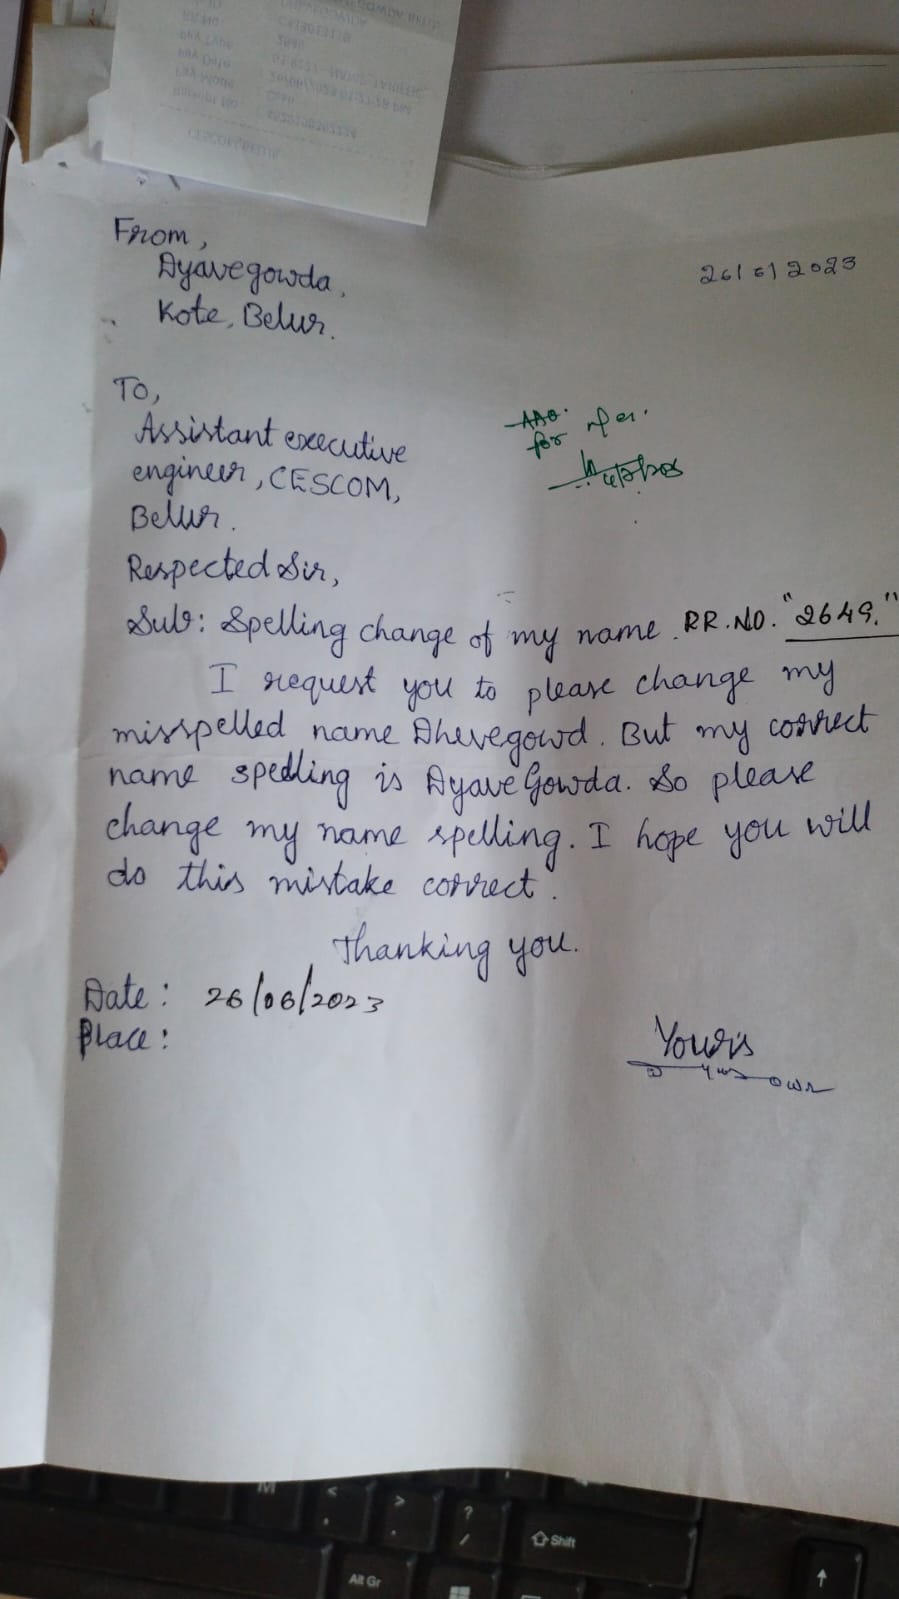 From,
Dyavegowda,
Kote, Belur.
26/6/2023
To,
Assistant executive
engineer, CESCOM,
Belur.
AAO.
for
Respected Sir,
Sub: Spelling change of my name. RR.NO. "2649."
I request you to please change my
misspelled name Dhevegowd. But my correct
name spelling is Dyave Gowda. So please
change my name spelling. I hope you will
do this mistake correct.
Thanking you.
Date: 26/06/2023
Place:
Yours
Shift
Alt Gr